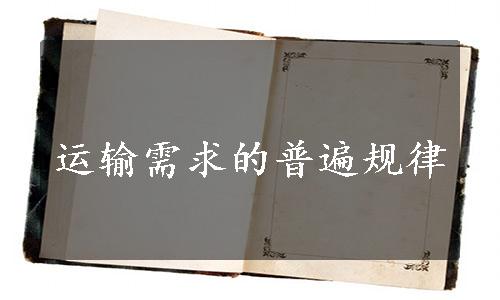 运输需求的普遍规律